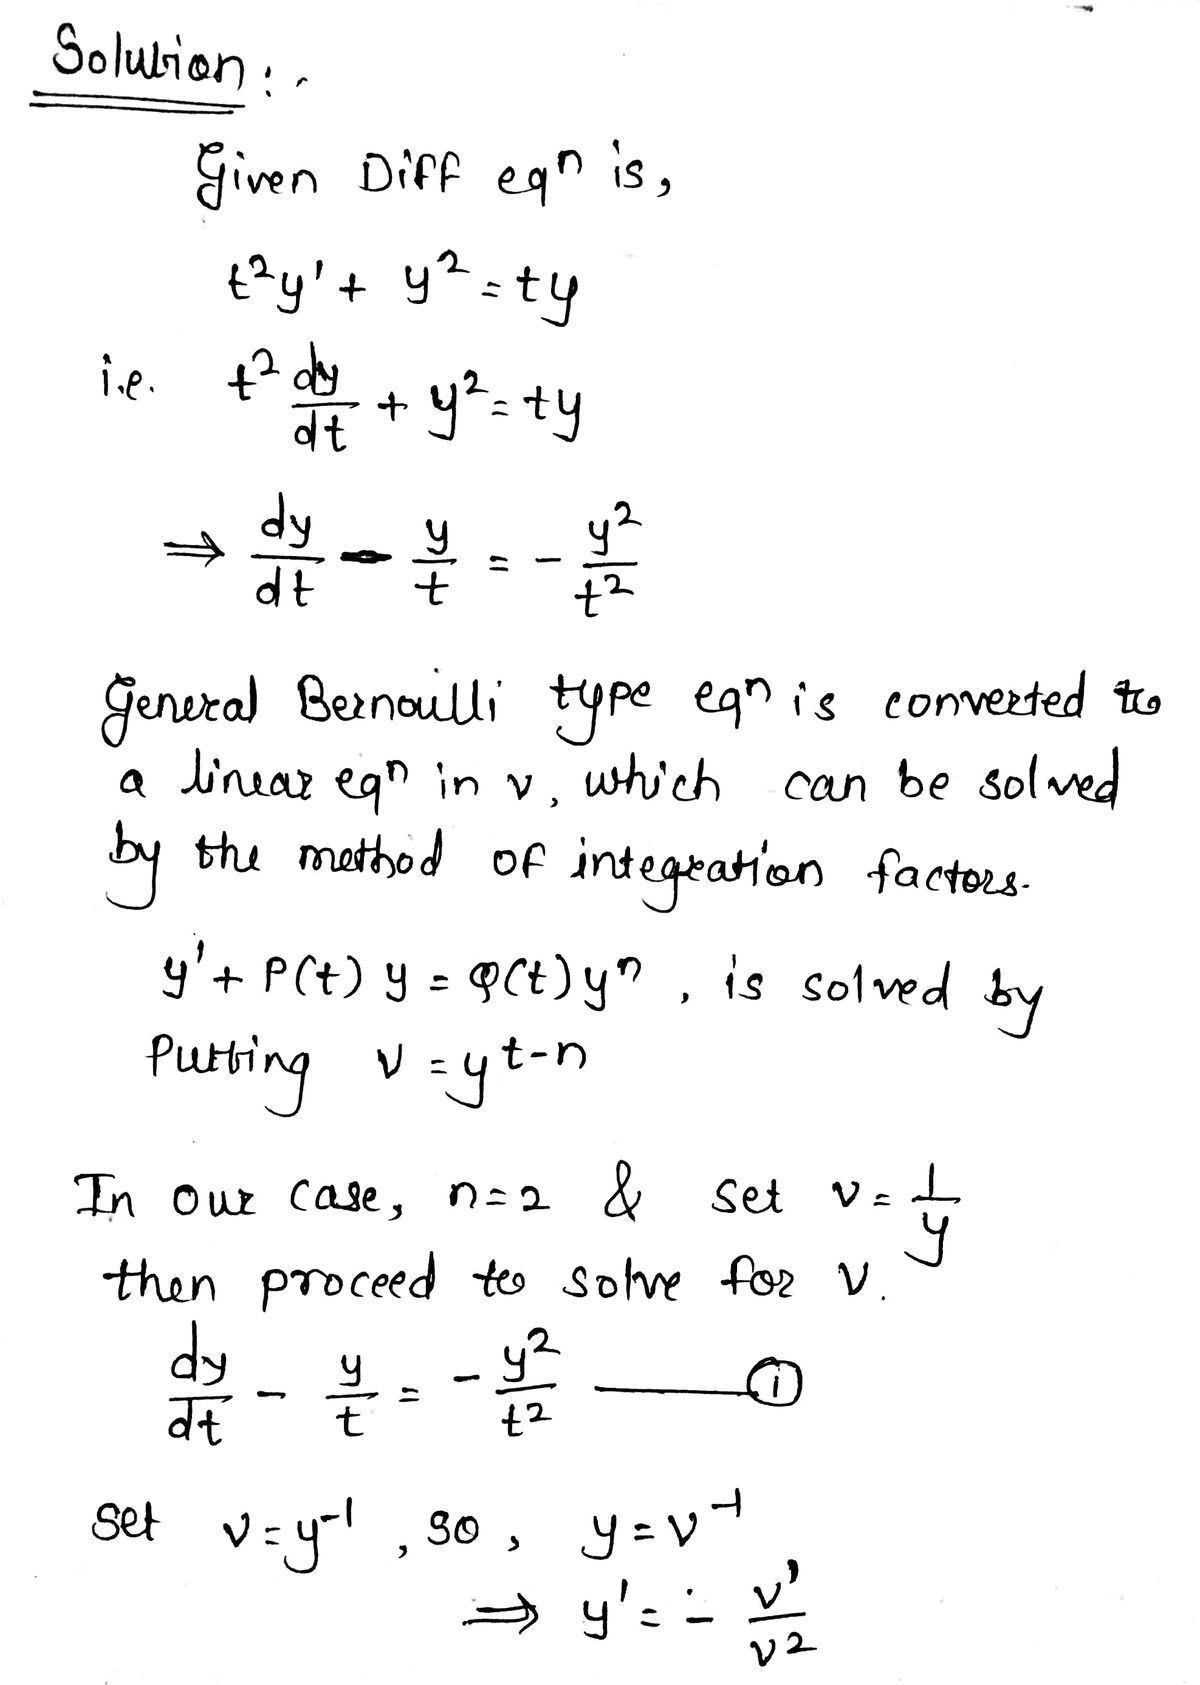 Solution :-
Given Diff eqⁿ is,
t²y' + y² = ty
i.e. t² dy/dt + y² = ty
⇒ dy/dt - y/t = - y²/t²
General Bernouilli type eqⁿ is converted to
a linear eqⁿ in v, which can be solved
by the method of integration factors.
y' + P(t) y = Q(t) yⁿ , is solved by
Putting v = y^(t-n)
In our case, n=2 & set v = 1/y
then proceed to solve for v.
dy/dt - y/t = - y²/t² ——— (i)
Set v = y⁻¹ , so , y = v⁻¹
⇒ y' = - v'/v²